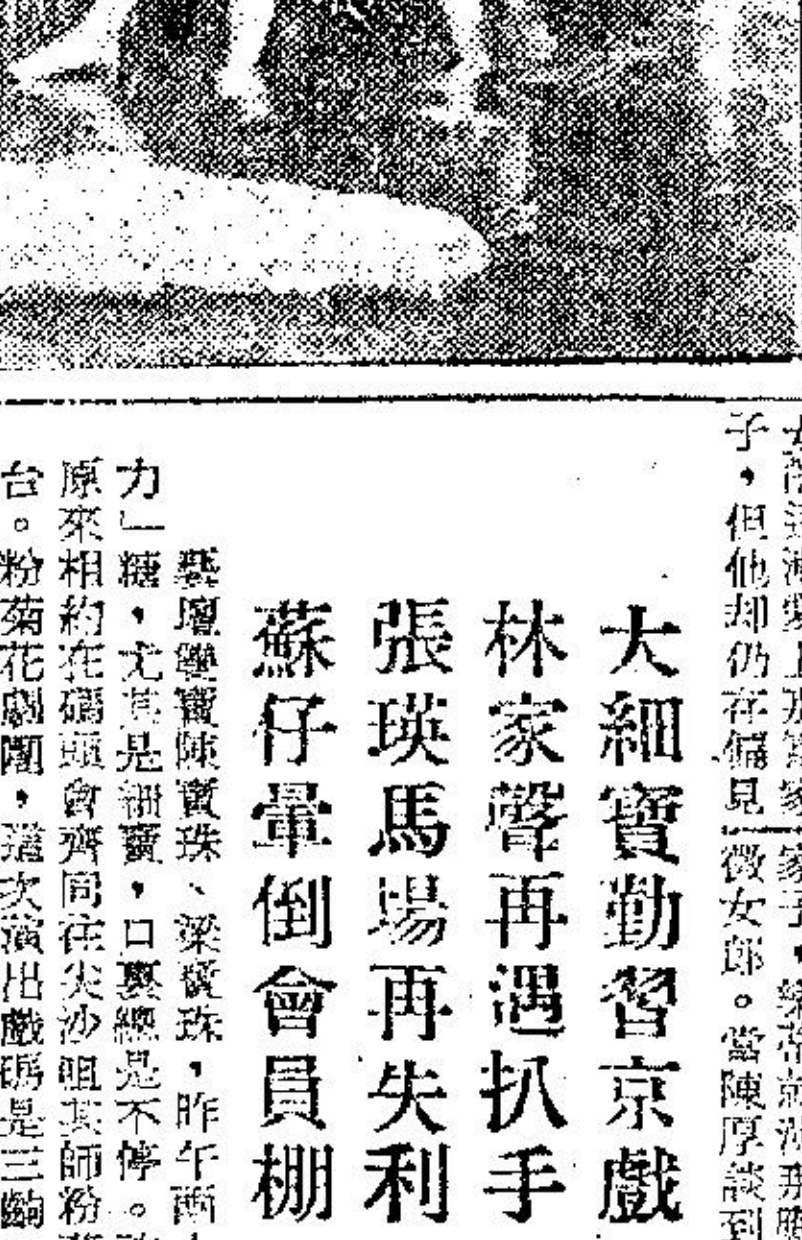 子，但他却仍在偏見
微女郎。當陳厚談到
大細寶勤習京戲
林家聲再遇扒手
張瑛馬場再失利
蘇仔暈倒會員棚
藝壇雙寶陳寶珠、梁寶珠，昨午兩
力」糖，尤其是細寶，口裏總是不停。
原來相約在碼頭會齊同往尖沙咀其師粉
台。粉菊花劇團，這次演出戲碼是三齣